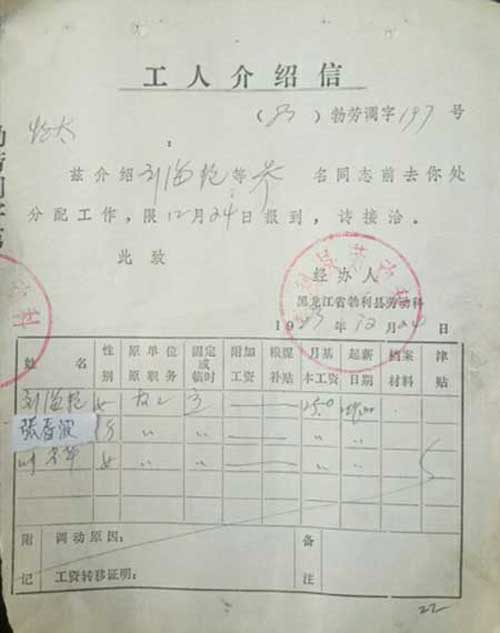 工人介绍信
(83)勃劳调字197号
:
兹介绍刘海艳等 名同志前去你处
分配工作,限12月24日报到,请接洽.
此致
经办人
黑龙江省勃利县劳动科
1983年12月24日
姓名 性别 原单位原职务 固定或临时 附加工资 粮煤补贴 月基本工资 起薪日期 档案材料 津贴
刘海艳 女
张春波 男 〃 〃 〃 〃
女 〃 〃 〃 〃
附记 调动原因: 备注
工资转移证明:
22